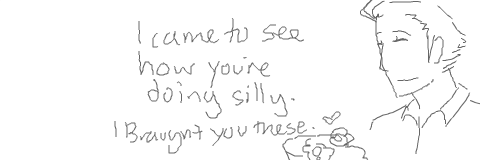 I came to see
how you're
doing silly.
I Braught you these.